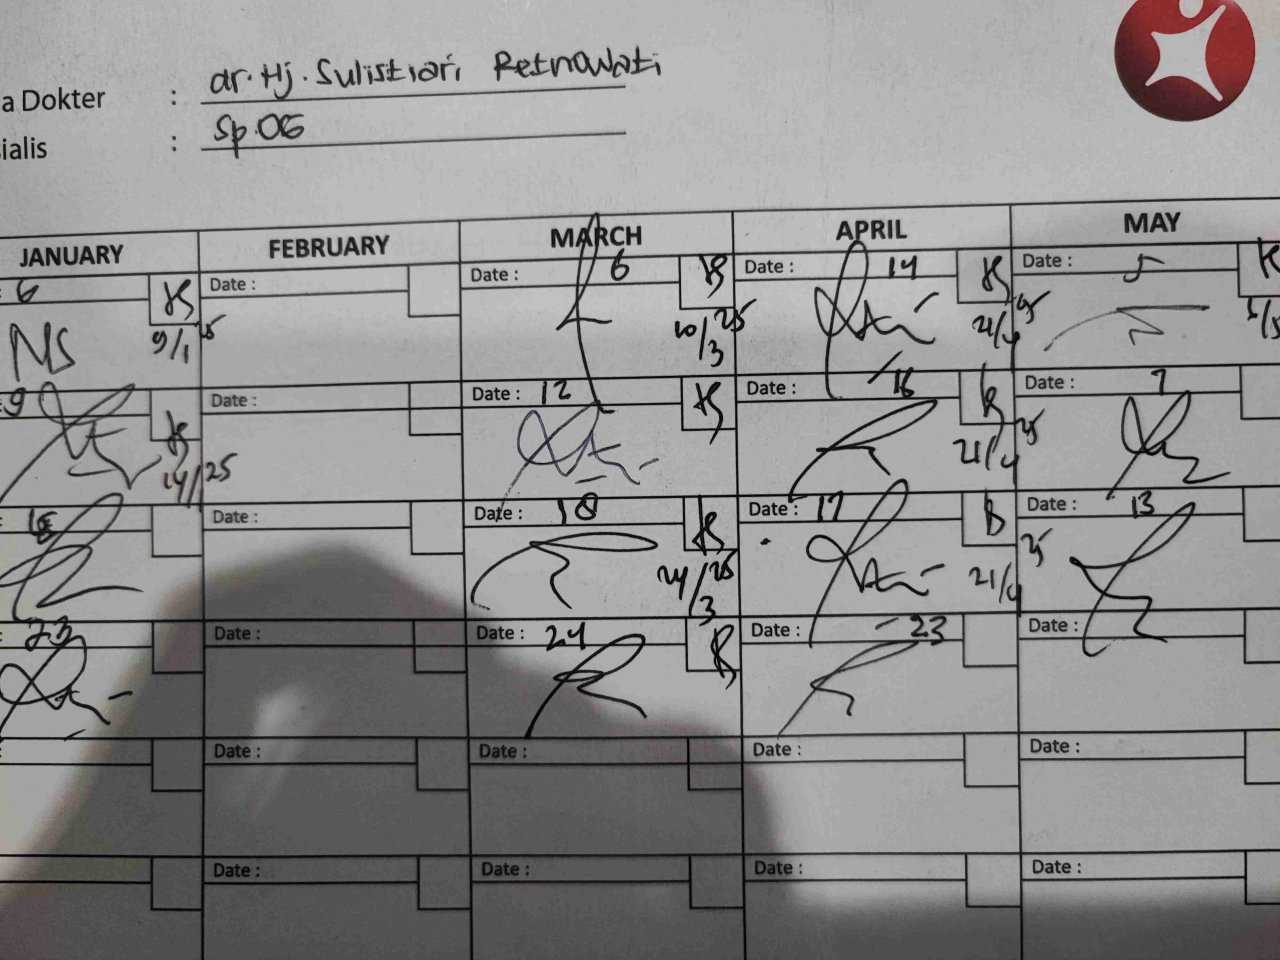 dr. Hj. Sulistiari Retnowati
a Dokter :
Sp.OG
ialis :
JANUARY FEBRUARY MARCH APRIL MAY
6 Date : Date : 6 Date : 14 Date : 5
NS 9/1 25 10/3 25 21/4 25
9 Date : Date : 12 Date : 16 Date : 7
14/1 25 21/4 25
18 Date : Date : 18 Date : 17 Date : 13
24/3 25 21/4 25
23 Date : Date : 24 Date : 23 Date :
Date : Date : Date : Date :
Date : Date : Date : Date :